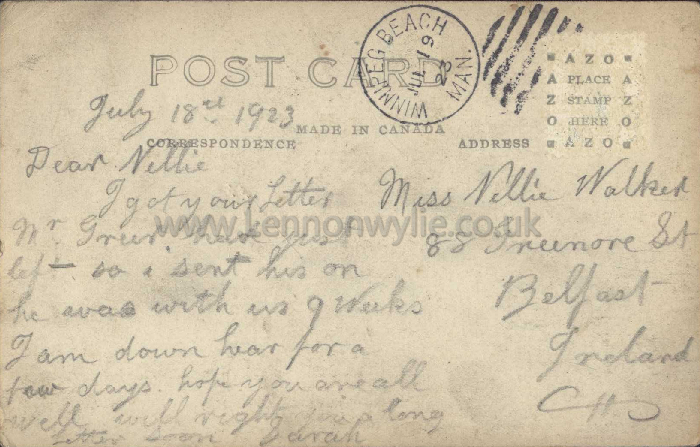 POST CARD
WINNIPEG BEACH
JUL 19
23
MAN.
AZO
PLACE
STAMP
HERE
AZO
July 18st 1923
MADE IN CANADA
CORRESPONDENCE
ADDRESS
Dear Nellie
I got your Letter
Mr Greer have just
left so i sent his on
he was with us 9 Weeks
I am down hear for a
few days. hope you are all
well will right you a long
Letter soon Sarah
Miss Nellie Walker
88 Greenore St
Belfast
Ireland
www.Lennonwylie.co.uk